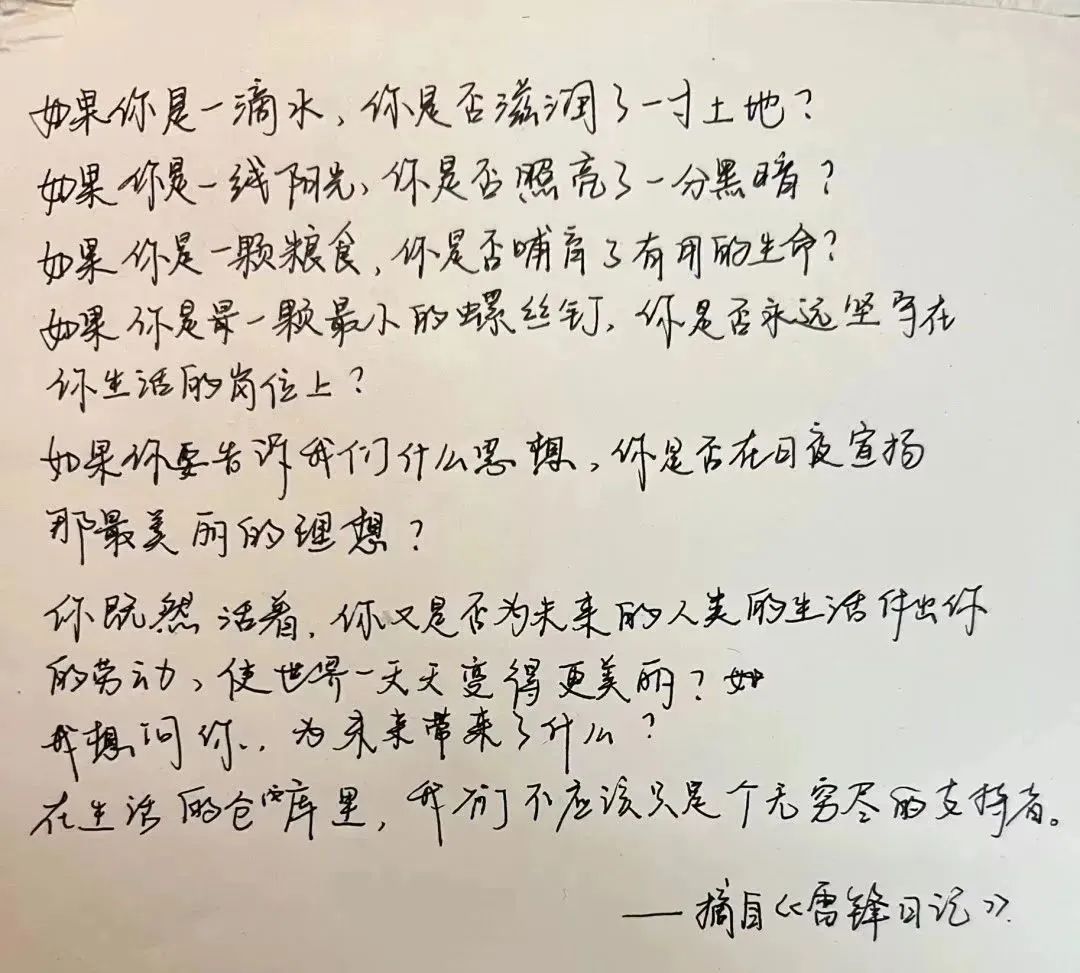 如果你是一滴水，你是否滋润了一寸土地？
如果你是一线阳光，你是否照亮了一分黑暗？
如果你是一颗粮食，你是否哺育了有用的生命？
如果你是最一颗最小的螺丝钉，你是否永远坚守在
你生活的岗位上？
如果你要告诉我们什么思想，你是否在日夜宣扬
那最美丽的理想？
你既然活着，你又是否为未来的人类的生活付出你
的劳动，使世界一天天变得更美丽？
我想问你，为未来带来了什么？
在生活的仓库里，我们不应该只是个无穷尽的支持者。
——摘自《雷锋日记》